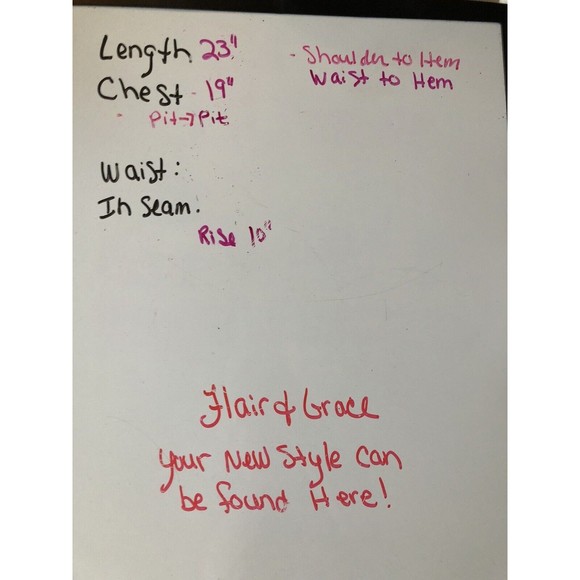 Length 23" - Shoulder to Hem
Chest - 19" Waist to Hem
- Pit→Pit
Waist:
In Seam:
Rise 10"
Flair & Grace
Your New Style can
be found Here!